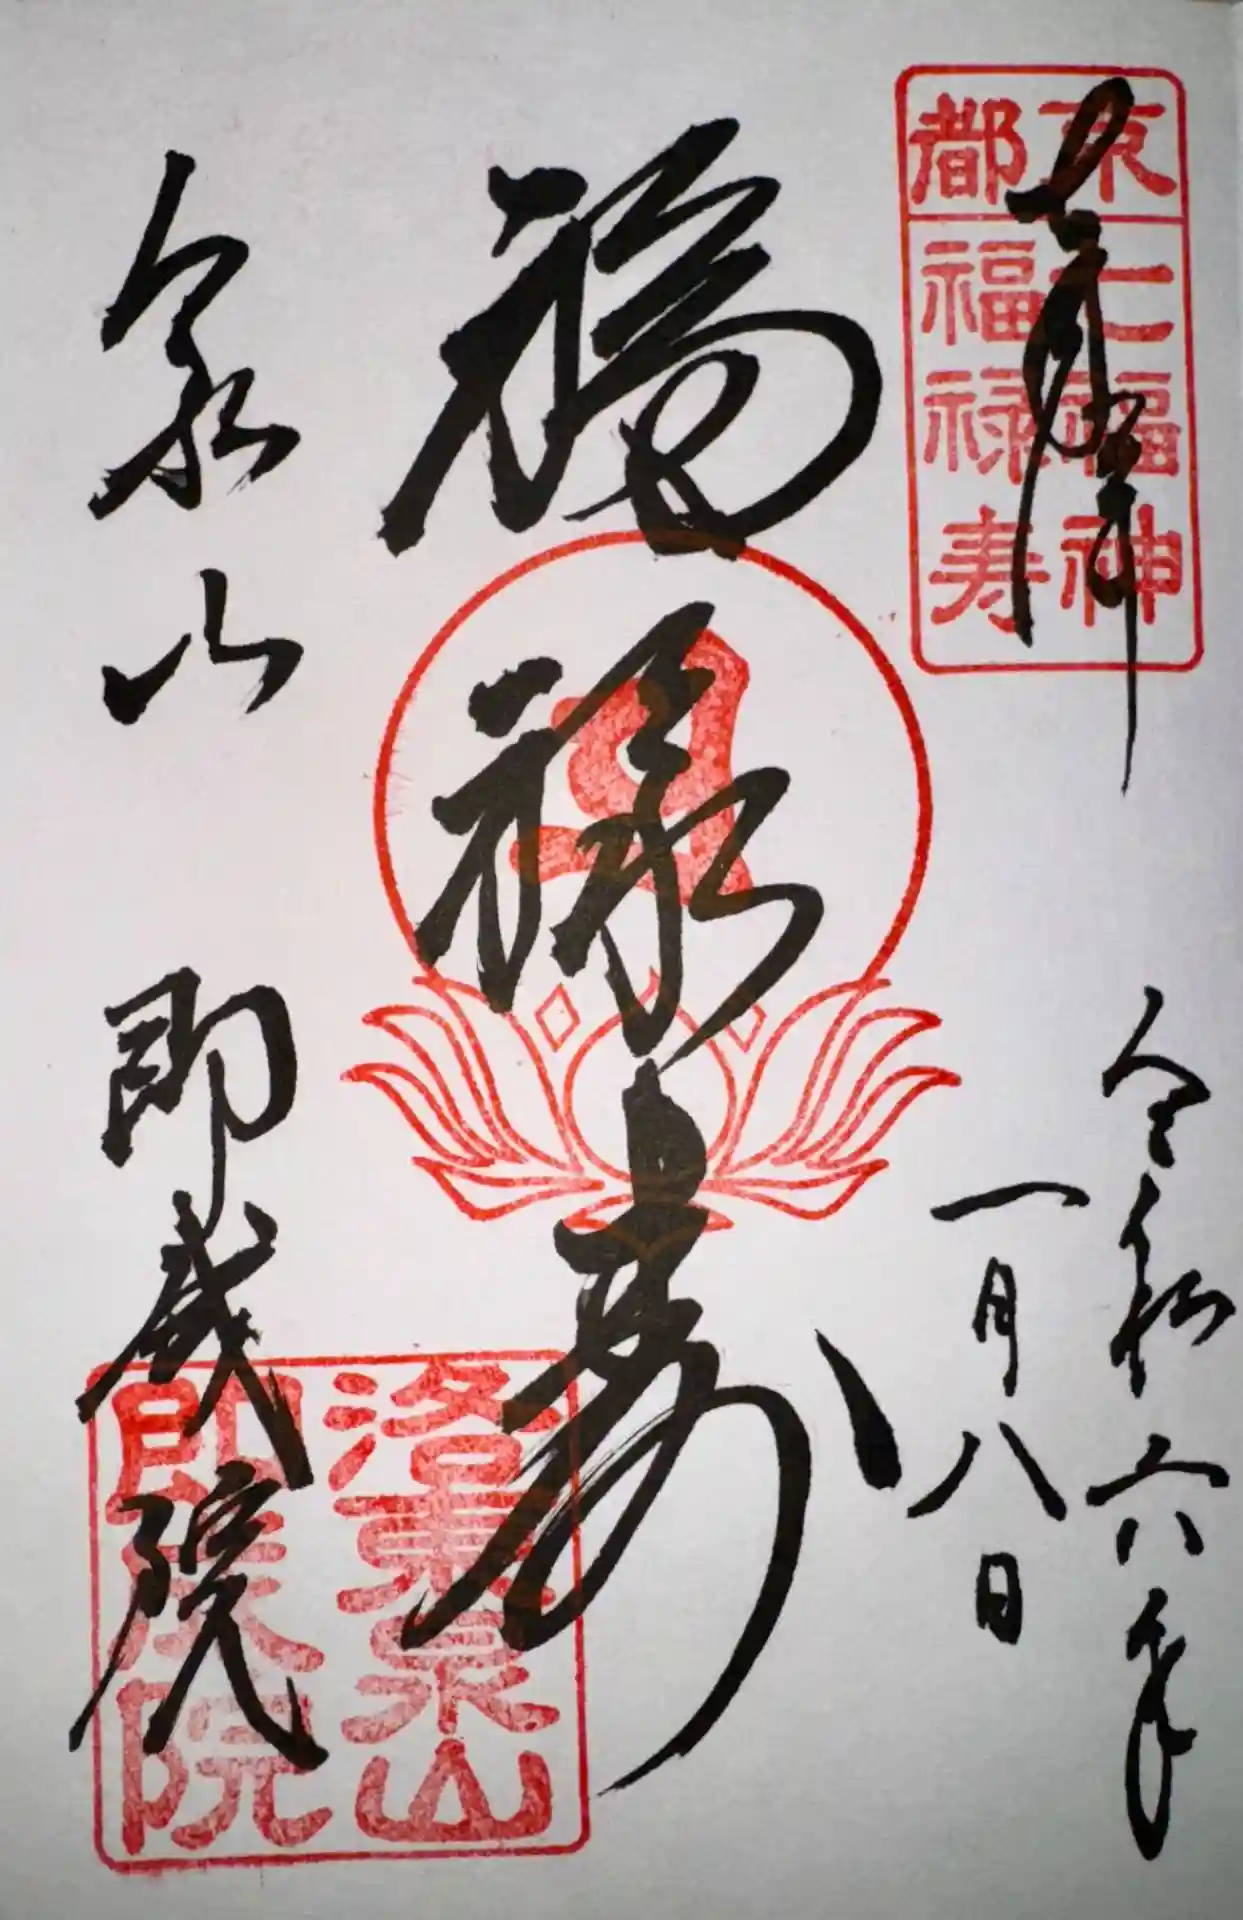 奉拝
京都
七福神
福禄寿
令和六年
一月八日
福禄寿
泉山
即成院
洛東泉山
即成院